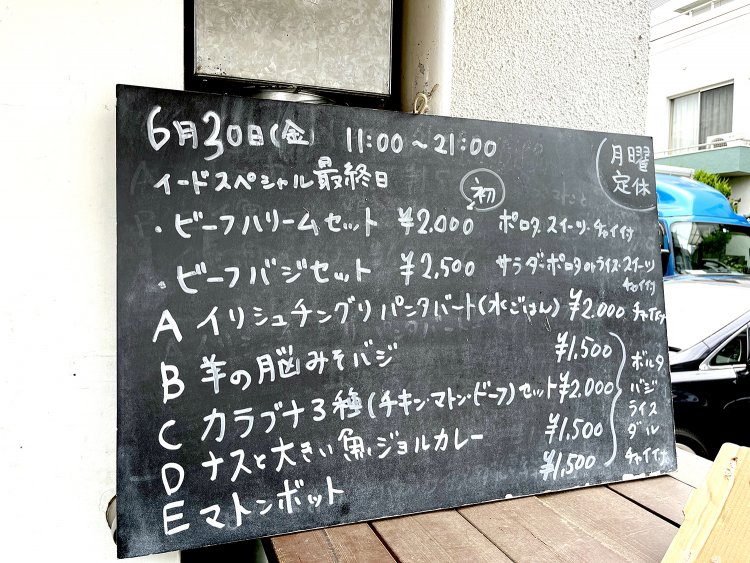 6月30日(金) 11:00～21:00
月曜
定休
イードスペシャル最終日
初
・ビーフハリームセット ¥2.000 ポロタ・スイーツ・チャイ付
・ビーフバジセット ¥2,500 サラダ・ポロタorライス・スイーツ
チャイ付
A イリシュチングリパンタバート(水ごはん) ¥2.000 チャイ付
B 羊の脳みそバジ ¥1.500
C カラブナ3種(チキン・マトン・ビーフ)セット ¥2.000
D ナスと大きい魚ジョルカレー ¥1,500
E マトンボット ¥1,500
ボルタ
バジ
ライス
ダル
チャイ付